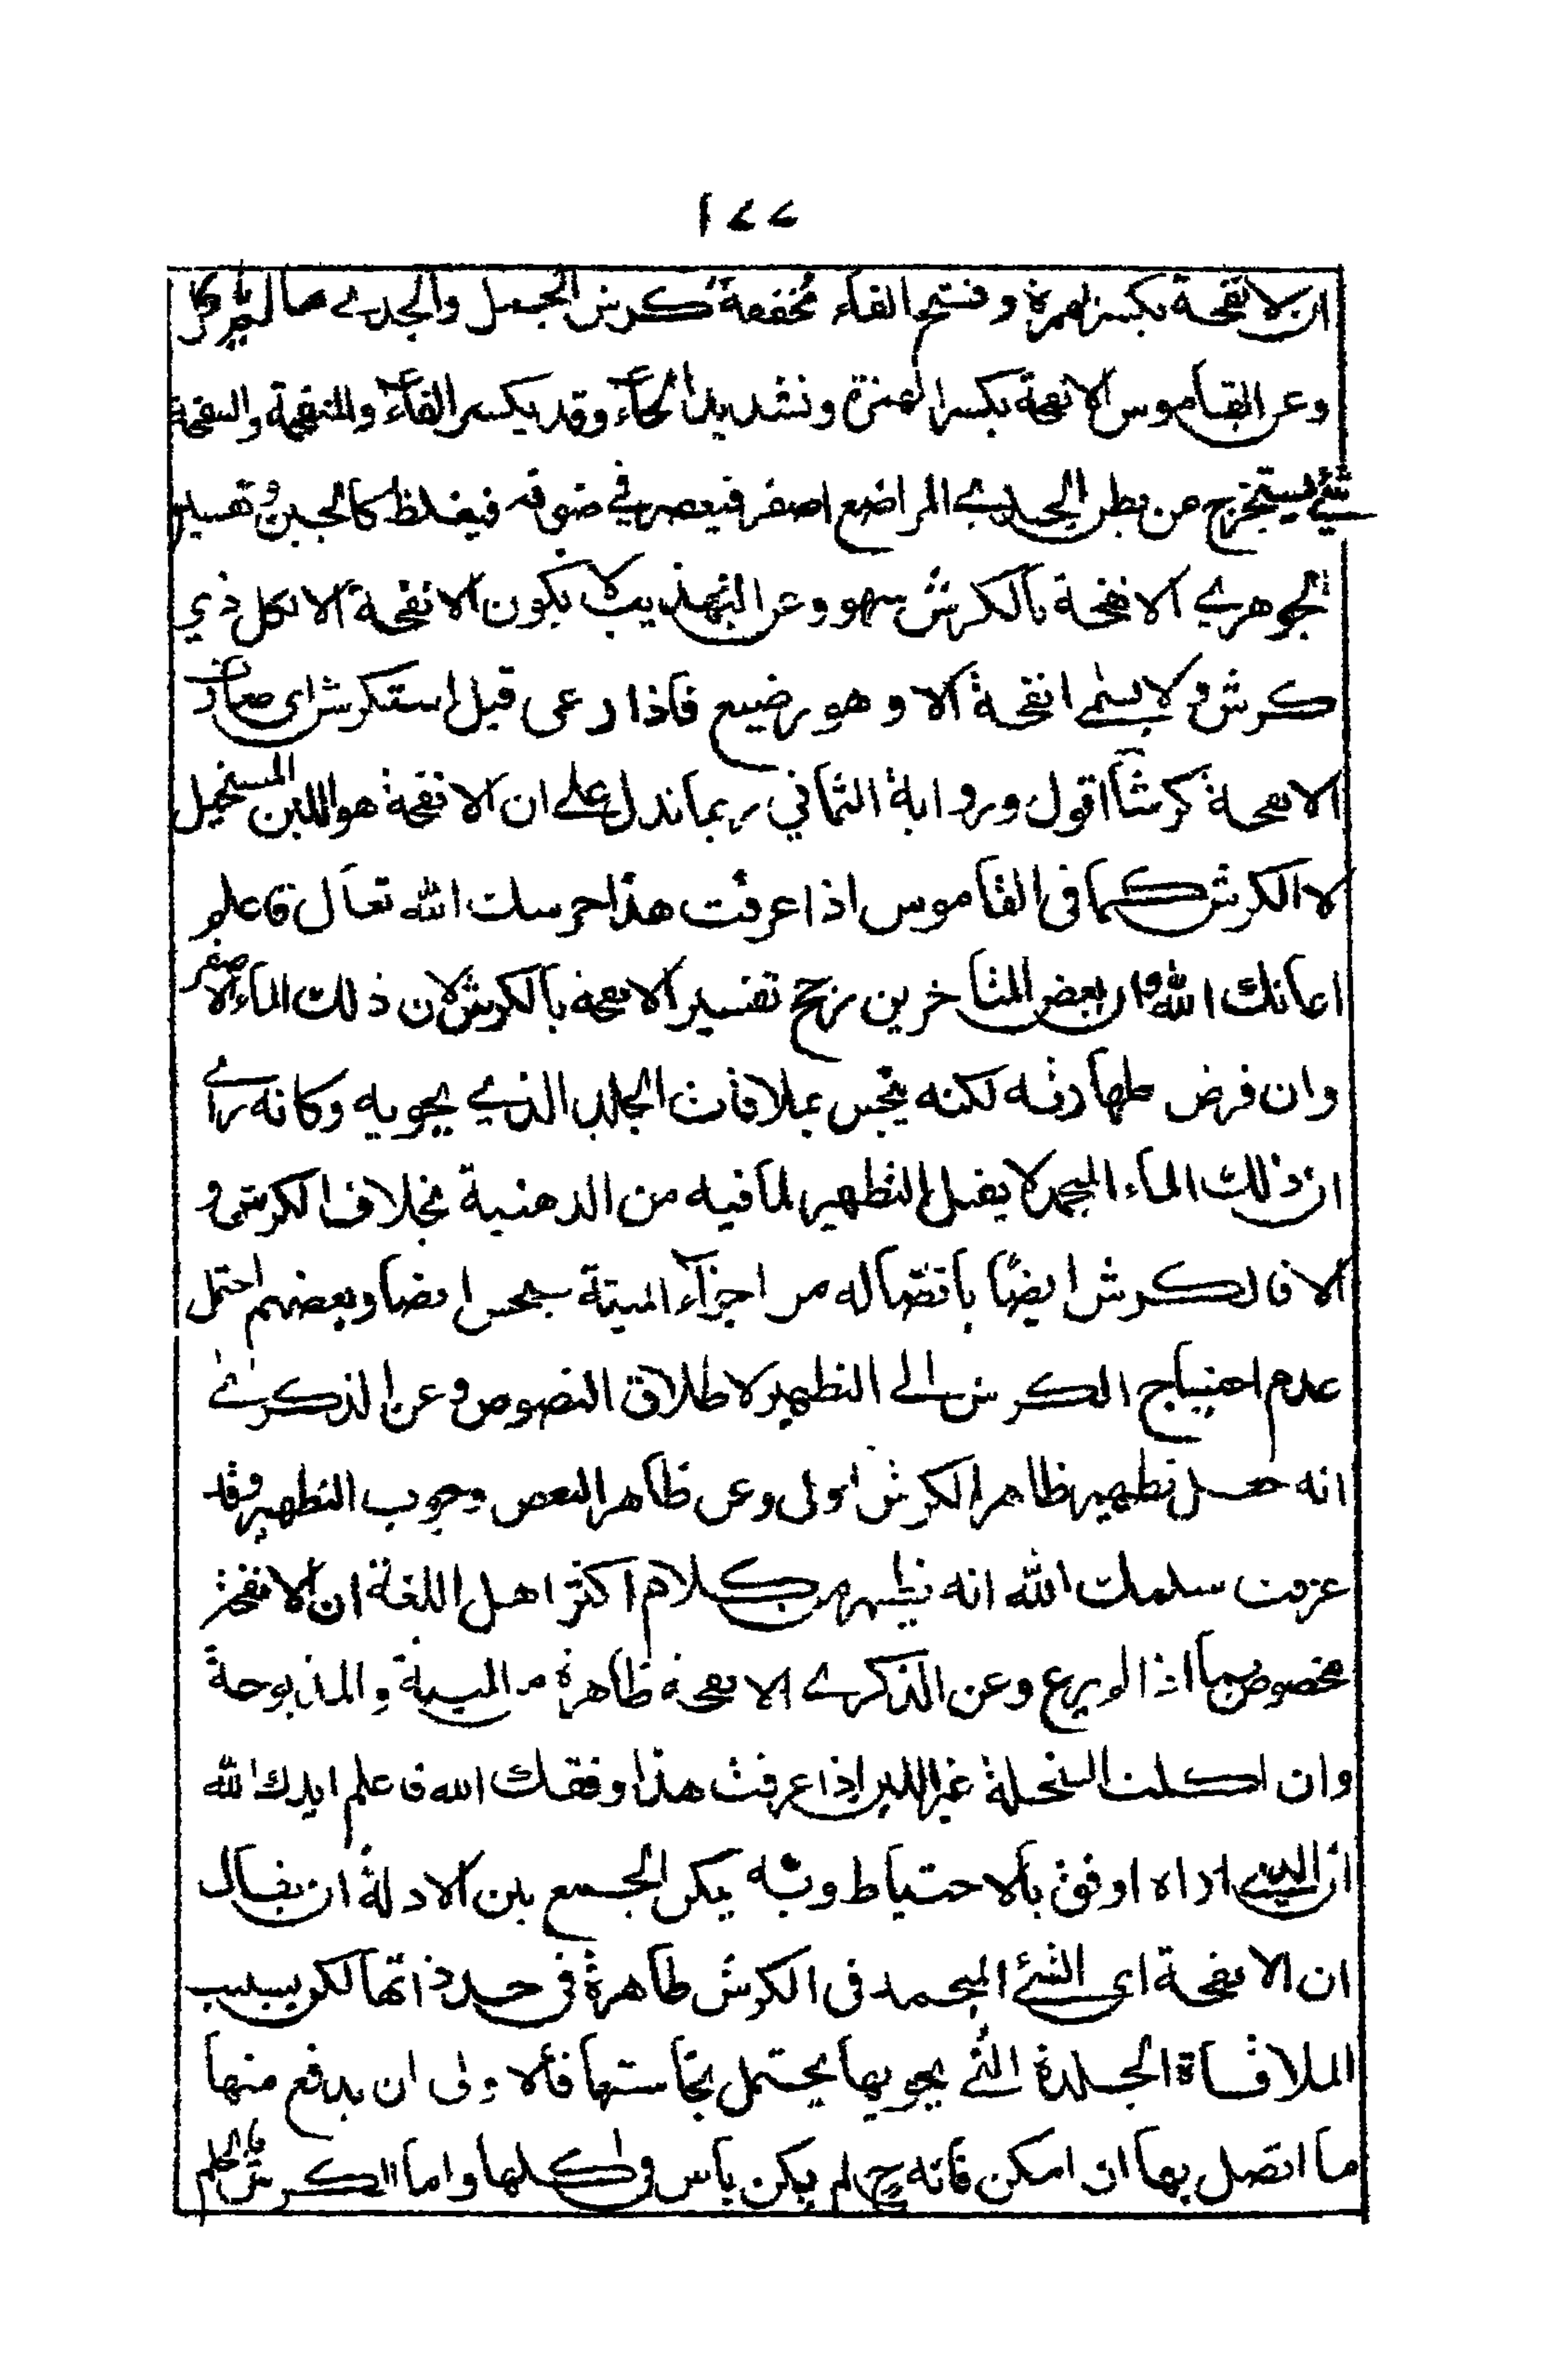 ١٧٧
ان الانفحة بكسر الهمزة وفتح الفاء مخففة كرش الحمل والجدي ما لم ياكل
وعن القاموس الانفحة بكسر الهمزة وتشديد الحاء وقد يكسر الفاء والمنفحة والبنفحة
شئ يستخرج من بطن الجدي الراضع اصفر فيعصر في صوفه فيغلظ كالجبن وتفسير
الجوهري الانفحة بالكرش سهو وعن التهذيب لا يكون الانفحة الا لكل ذي
كرش ولا يسمى انفحة الا وهو رضيع فاذا رعى قيل استكرش اي صارت
الانفحة كرشا اقول ورواية الثمالي ربما تدل على ان الانفحة هو اللبن المستحيل
لا الكرش كما في القاموس اذا عرفت هذا حرسك الله تعال فاعلم
اعانك الله ان بعض المتاخرين رجح تفسير الانفحة بالكرش لان ذلك الماء الاصفر
وان فرض طهارته لكنه ينجس بملاقات الجلد الذي يحويه وكانه راى
ان ذلك الماء المنجمد لا يقبل التطهير لما فيه من الدهنية بخلاف الكرش و
الا فالكرش ايضا باتصاله من اجزاء الميتة ينجس ايضا وبعضهم احتمل
عدم احتياج الكرش الى التطهير لاطلاق النصوص وعن الذكرى
انه جعل تطهير ظاهر الكرش اولى وعن ظاهر البعض وجوب التطهير وقد
عرفت سلمك الله انه يظهر من كلام اكثر اهل اللغة ان الانفحة
مخصوص بما اذا لم يرع وعن الذكرى الانفحة طاهرة من الميتة والمذبوحة
وان اكلت السخلة غير اللبن اذا عرفت هذا وفقك الله فاعلم ايدك الله
ان الذي اراه اوفق بالاحتياط وبه يمكن الجمع بين الادلة ان يقال
ان الانفحة اي الشئ المنجمد في الكرش طاهرة في حد ذاتها لكن بسبب
الملاقاة الجلدة التي يحويها يحتمل نجاستها فالاولى ان يدفع منها
ما اتصل بها ان امكن فانه ح لم يكن باس في اكلها واما الكرش